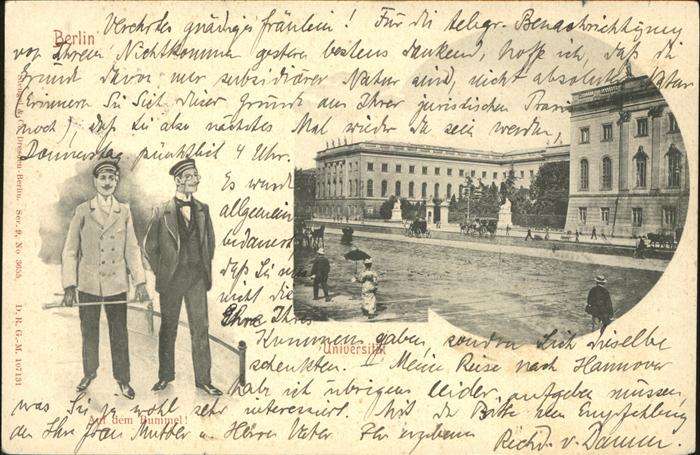 Berlin
Verehrtes gnädiges Fräulein! Für die telegr. Benachrichtigung
von Ihrem Nichtkommen gestern bestens dankend, hoffe ich, daß die
Gründe davon nur subsidiärer Natur sind, nicht absoluter Natur
(Erinnern Sie Sich dieser Gründe aus Ihrer juristischen Praxis
noch), daß Sie also nächstes Mal wieder da sein werden,
Donnerstag pünktlich 4 Uhr.
Es wurde
allgemein
bedauert
daß Sie uns
nicht die
Ehre Ihres
Kommens gaben, sondern Sich dieselbe
schenkten. II. Meine Reise nach Hannover
habe ich übrigens leider aufgeben müssen,
was Sie ja wohl sehr interessirt. Mit der Bitte um Empfehlung
an Ihre Frau Mutter u. Herrn Vater Ihr ergebener
Richd. v.
Universität
Auf dem Bummel!
Dresden-Berlin. Ser. 9, No 3655. D. R. G.-M. 107131